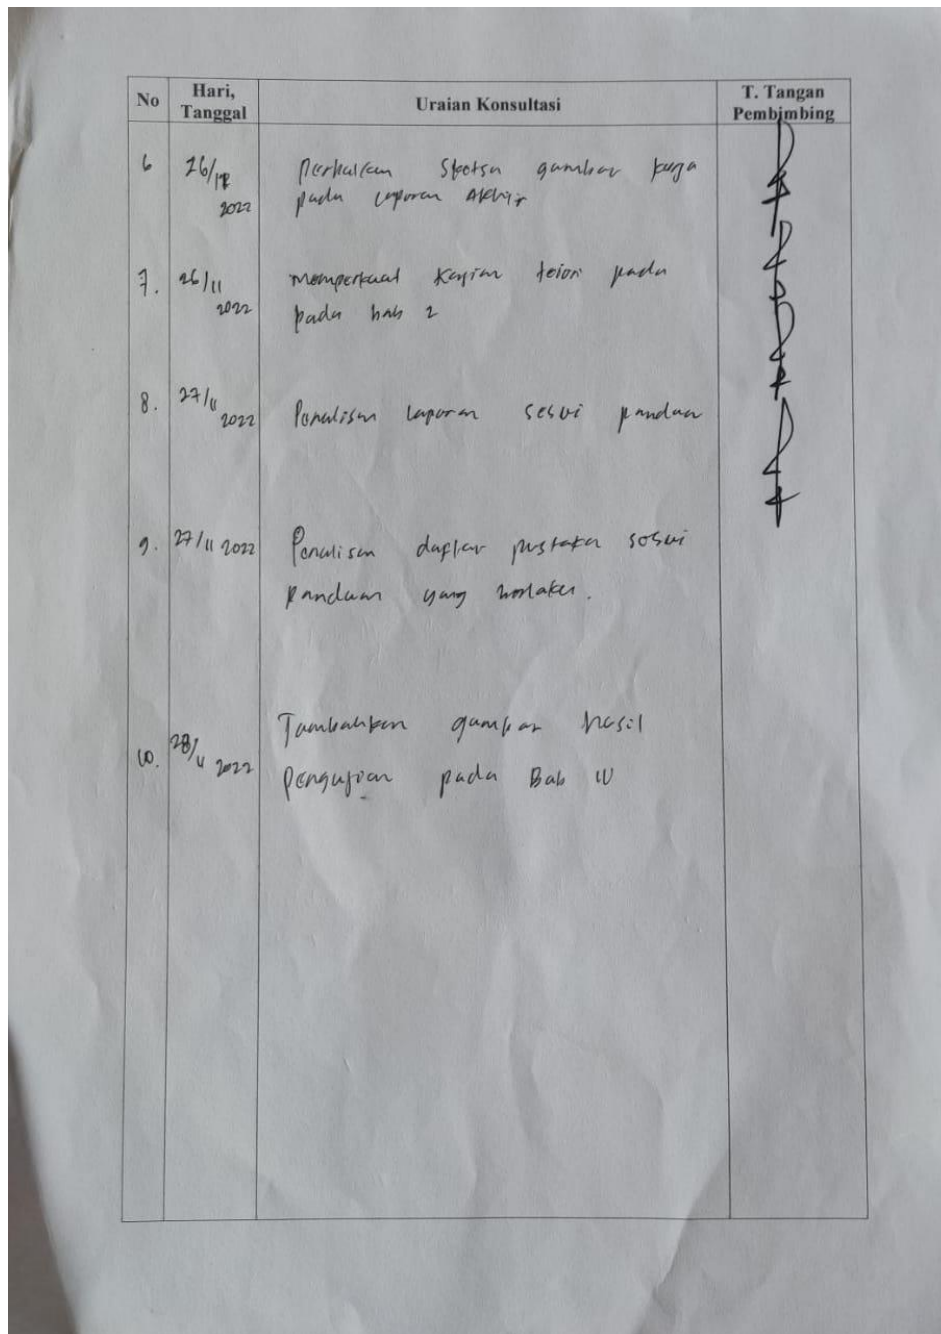 No Hari, Tanggal Uraian Konsultasi T. Tangan Pembimbing
6 26/11 2022 Perbaikan Sketsa gambar kerja
pada laporan Akhir
7. 26/11 2022 memperkuat Kajian teiori pada
pada bab 2
8. 27/11 2022 Penulisan laporan sesui panduan
9. 27/11 2022 Penulisan daftar pustaka sesui
panduan yang berlaku.
10. 28/11 2022 Tambahkan gambar hasil
pengujian pada Bab IV